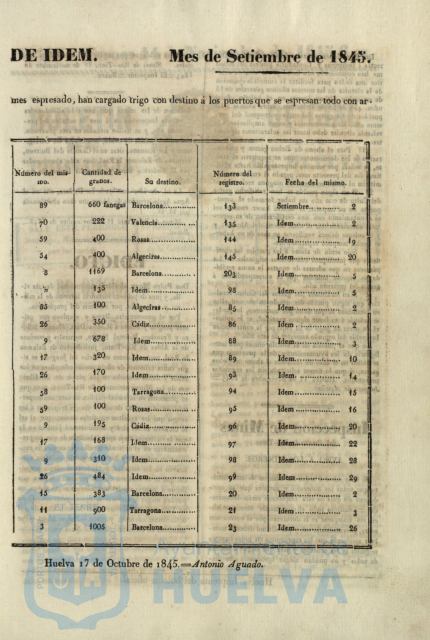 DE IDEM. Mes de Setiembre de 1845.
mes espresado, han cargado trigo con destino á los puertos que se espresan todo con ar-
Número del mis- Cantidad de Su destino. Número del Fecha del mismo.
mo. granos. registro.
89 660 fanegas Barcelona 133 Setiembre 2
70 222 Valencia 135 Idem 2
59 400 Rosas 144 Idem 19
54 400 Algeciras 145 Idem 20
8 1169 Barcelona 203 Idem 5
135 Idem 98 Idem 5
85 100 Algeciras 85 Idem 2
26 350 Cádiz 86 Idem 2
9 678 Idem 88 Idem 3
17 320 Idem 89 Idem 10
26 170 Idem 93 Idem 14
58 100 Tarragona 94 Idem 15
59 100 Rosas 95 Idem 16
9 195 Cádiz 96 Idem 20
17 168 Idem 97 Idem 22
9 310 Idem 98 Idem 28
26 484 Idem 99 Idem 29
15 383 Barcelona 20 Idem 2
11 900 Tarragona 21 Idem 3
3 1005 Barcelona 23 Idem 26
Huelva 17 de Octubre de 1845.—Antonio Aguado.
Ayuntamiento de
HUELVA